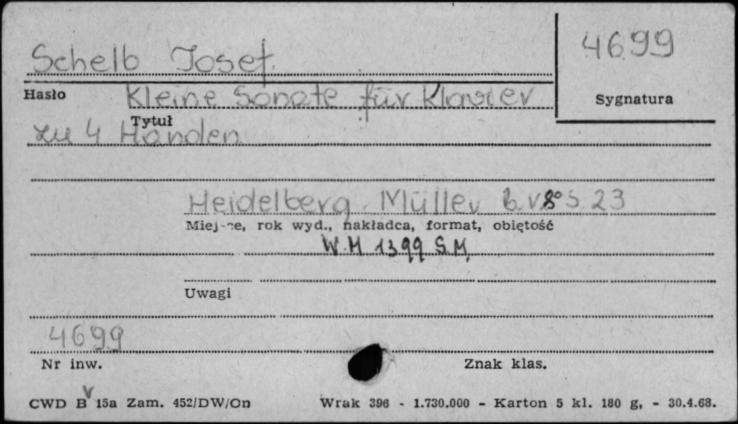 4699
Schelb Josef
Hasło
Kleine Sonate für Klavier
Sygnatura
Tytuł
zu 4 Händen
Heidelberg. Müller b.r. 8° S. 23
Miejsce, rok wyd., nakładca, format, objętość
W.M 1399 S.M.
Uwagi
4699
Nr inw.
Znak klas.
CWD B 15a Zam. 452/DW/On
Wrak 396 - 1.730.000 - Karton 5 kl. 180 g, - 30.4.68.